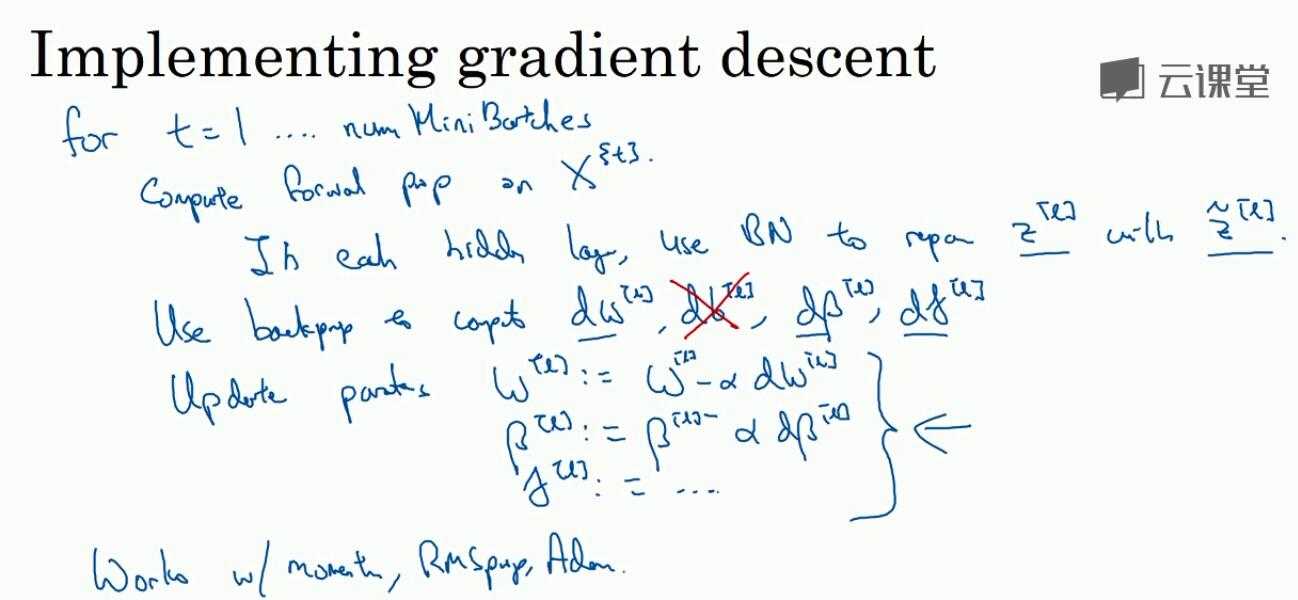 Implementing gradient descent
云课堂
for t=1 .... num MiniBatches
Compute forwal prop on X^{t}.
In each hidden lay, use BN to repa z^[l] with z̃^[l].
Use backprop to compt dw^[l], db^[l], dβ^[l], dγ^[l]
Update w^[l] := w^[l] - α dw^[l]
β^[l] := β^[l] - α dβ^[l]
γ^[l] := ....
Works w/ momentum, RMSprop, Adam.